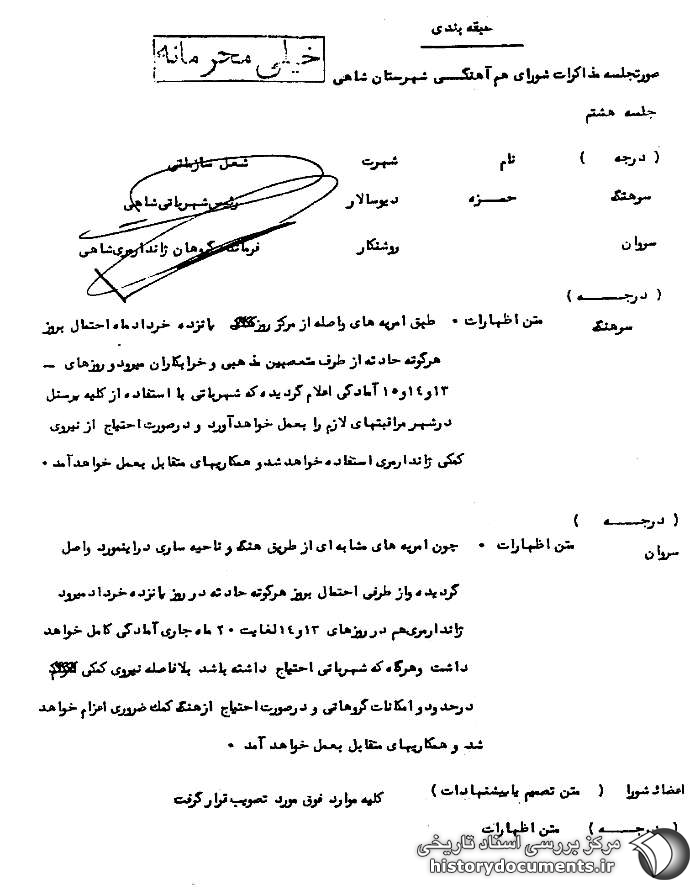 طبقه بندی
خیلی محرمانه
صورتجلسه مذاکرات شورای هم آهنگی شهرستان شاهی
جلسه هشتم
( درجه ) نام شهرت شغل سازمانی
سرهنگ حمزه دیوسالار رئیس شهربانی شاهی
سروان روشنکار فرمانده گروهان ژاندارمری شاهی
( درجه )
سرهنگ متن اظهارات ۰ طبق امریه های واصله از مرکز روز پانزده خرداد ماه احتمال بروز
هرگونه حادثه از طرف متعصبین مذهبی و خرابکاران میرود و روزهای –
۱۳و۱۴و۱۵ آمادگی اعلام گردیده که شهربانی با استفاده از کلیه پرسنل
در شهر مراقبتهای لازم را بعمل خواهد آورد و در صورت احتیاج از نیروی
کمکی ژاندارمری استفاده خواهد شد و همکاریهای متقابل بعمل خواهد آمد ۰
( درجه )
سروان متن اظهارات ۰ چون امریه های مشابه ای از طریق هنگ و ناحیه ساری در اینمورد واصل
گردیده و از طرفی احتمال بروز هرگونه حادثه در روز پانزده خرداد میرود
ژاندارمری هم در روزهای ۱۳و۱۴ لغایت ۲۰ ماه جاری آمادگی کامل خواهد
داشت و هرگاه که شهربانی احتیاج داشته باشد بلافاصله نیروی کمکی
در حدود و امکانات گروهانی و در صورت احتیاج از هنگ کمک ضروری اعزام خواهد
شد و همکاریهای متقابل بعمل خواهد آمد ۰
اعضاء شورا ( متن تصمیم یا پیشنهادات ) کلیه موارد فوق مورد تصویب قرار گرفت
( درجه ) متن اظهارات
مرکز بررسی اسناد تاریخی
historydocuments.ir